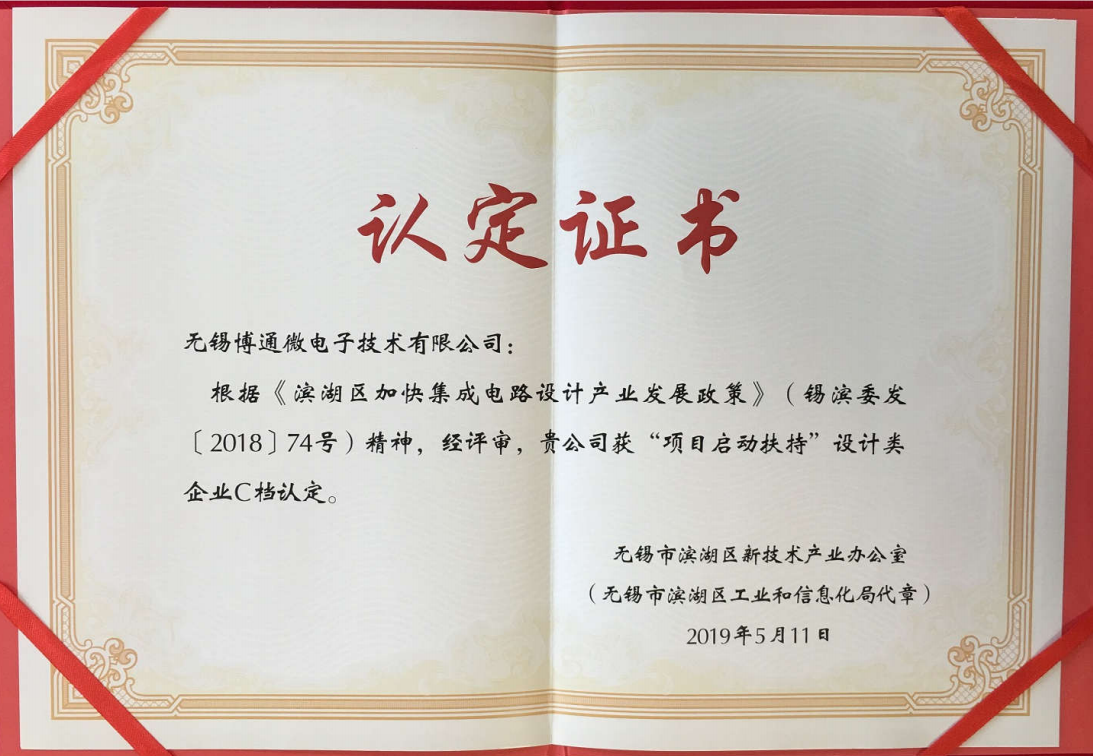 认定证书
无锡博通微电子技术有限公司：
根据《滨湖区加快集成电路设计产业发展政策》（锡滨委发
〔2018〕74号）精神，经评审，贵公司获“项目启动扶持”设计类
企业C档认定。
无锡市滨湖区新技术产业办公室
（无锡市滨湖区工业和信息化局代章）
2019年5月11日